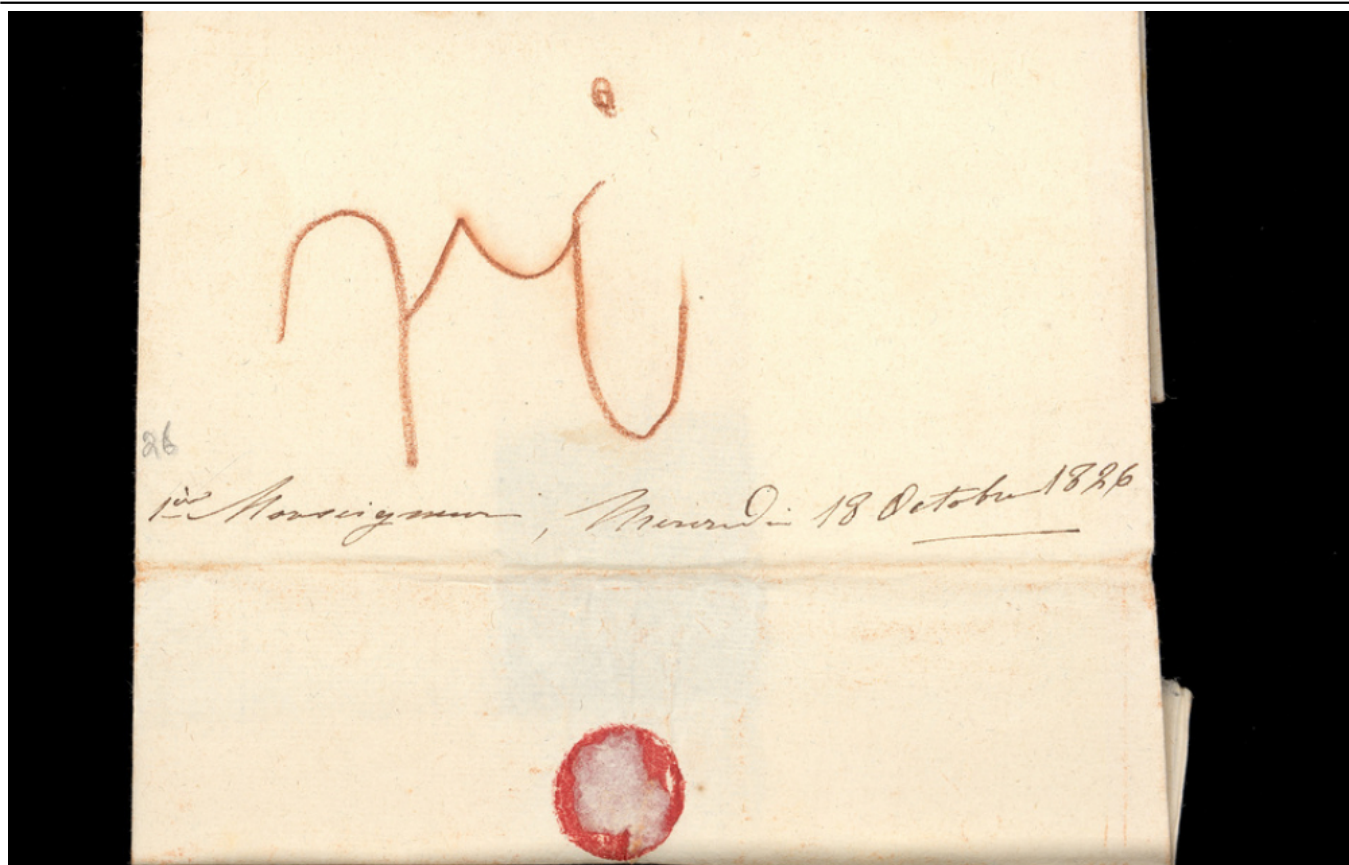 26
1er Monseigneur, Mercredi 18 Octobre 1826